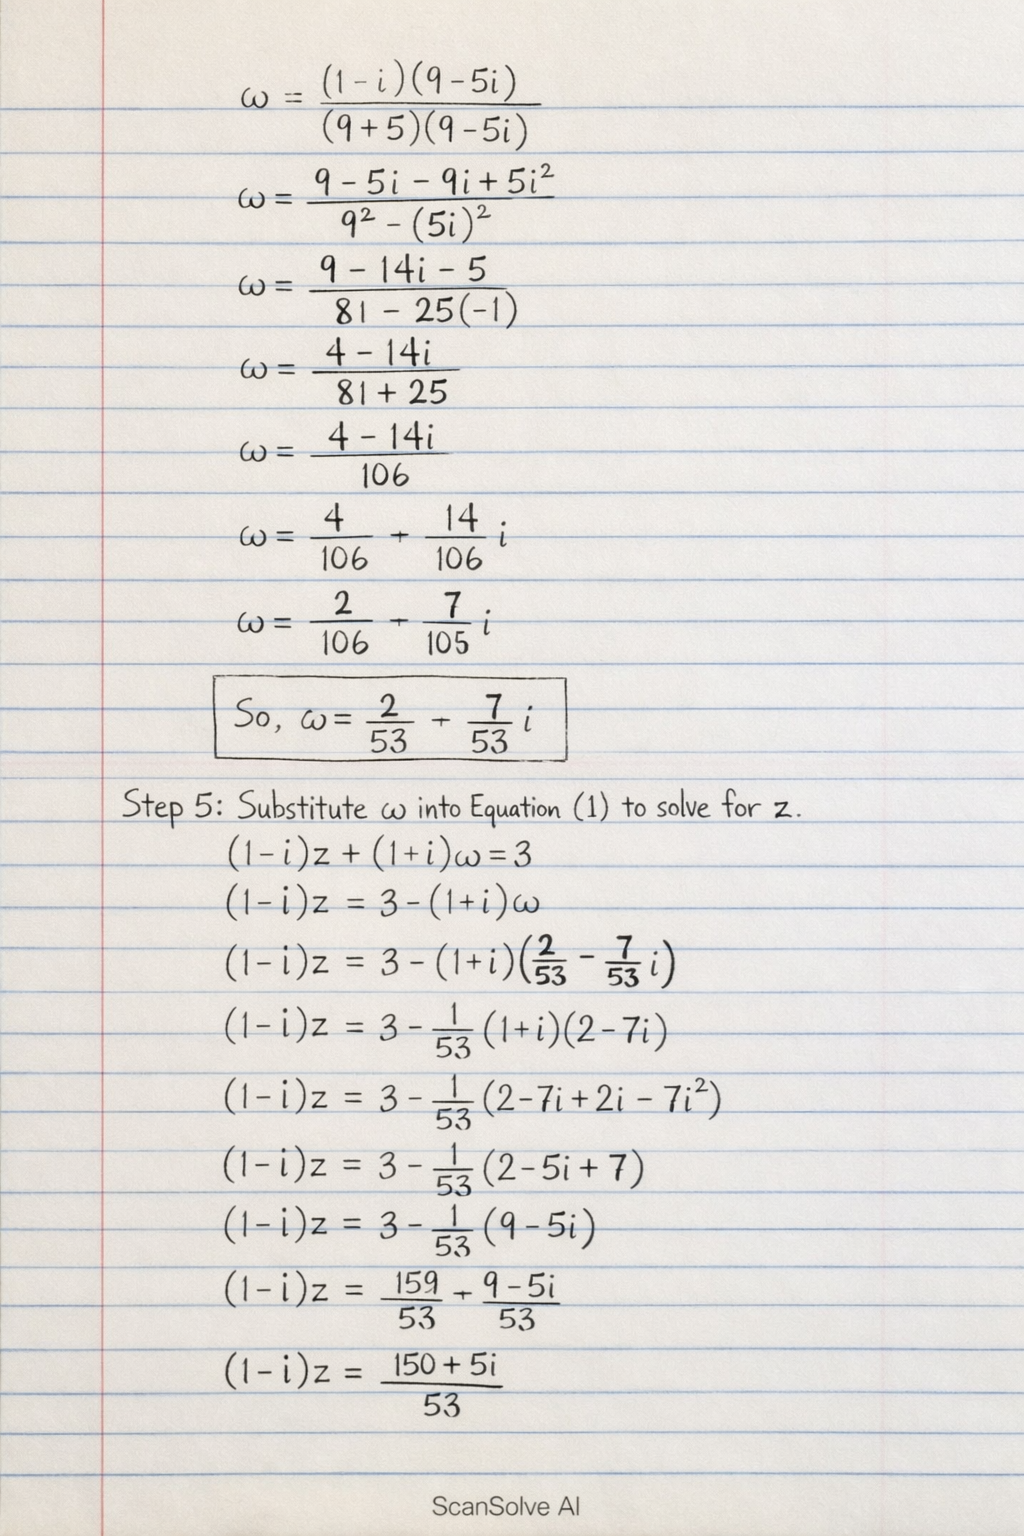 ω = (1-i)(9-5i) / (9+5)(9-5i)
ω = 9-5i-9i+5i² / 9²-(5i)²
ω = 9-14i-5 / 81-25(-1)
ω = 4-14i / 81+25
ω = 4-14i / 106
ω = 4/106 + 14/106 i
ω = 2/106 - 7/105 i
So, ω = 2/53 + 7/53 i
Step 5: Substitute ω into Equation (1) to solve for z.
(1-i)z + (1+i)ω = 3
(1-i)z = 3-(1+i)ω
(1-i)z = 3-(1+i)(2/53 - 7/53 i)
(1-i)z = 3 - 1/53 (1+i)(2-7i)
(1-i)z = 3 - 1/53 (2-7i+2i-7i²)
(1-i)z = 3 - 1/53 (2-5i+7)
(1-i)z = 3 - 1/53 (9-5i)
(1-i)z = 159/53 + 9-5i/53
(1-i)z = 150+5i / 53
ScanSolve AI